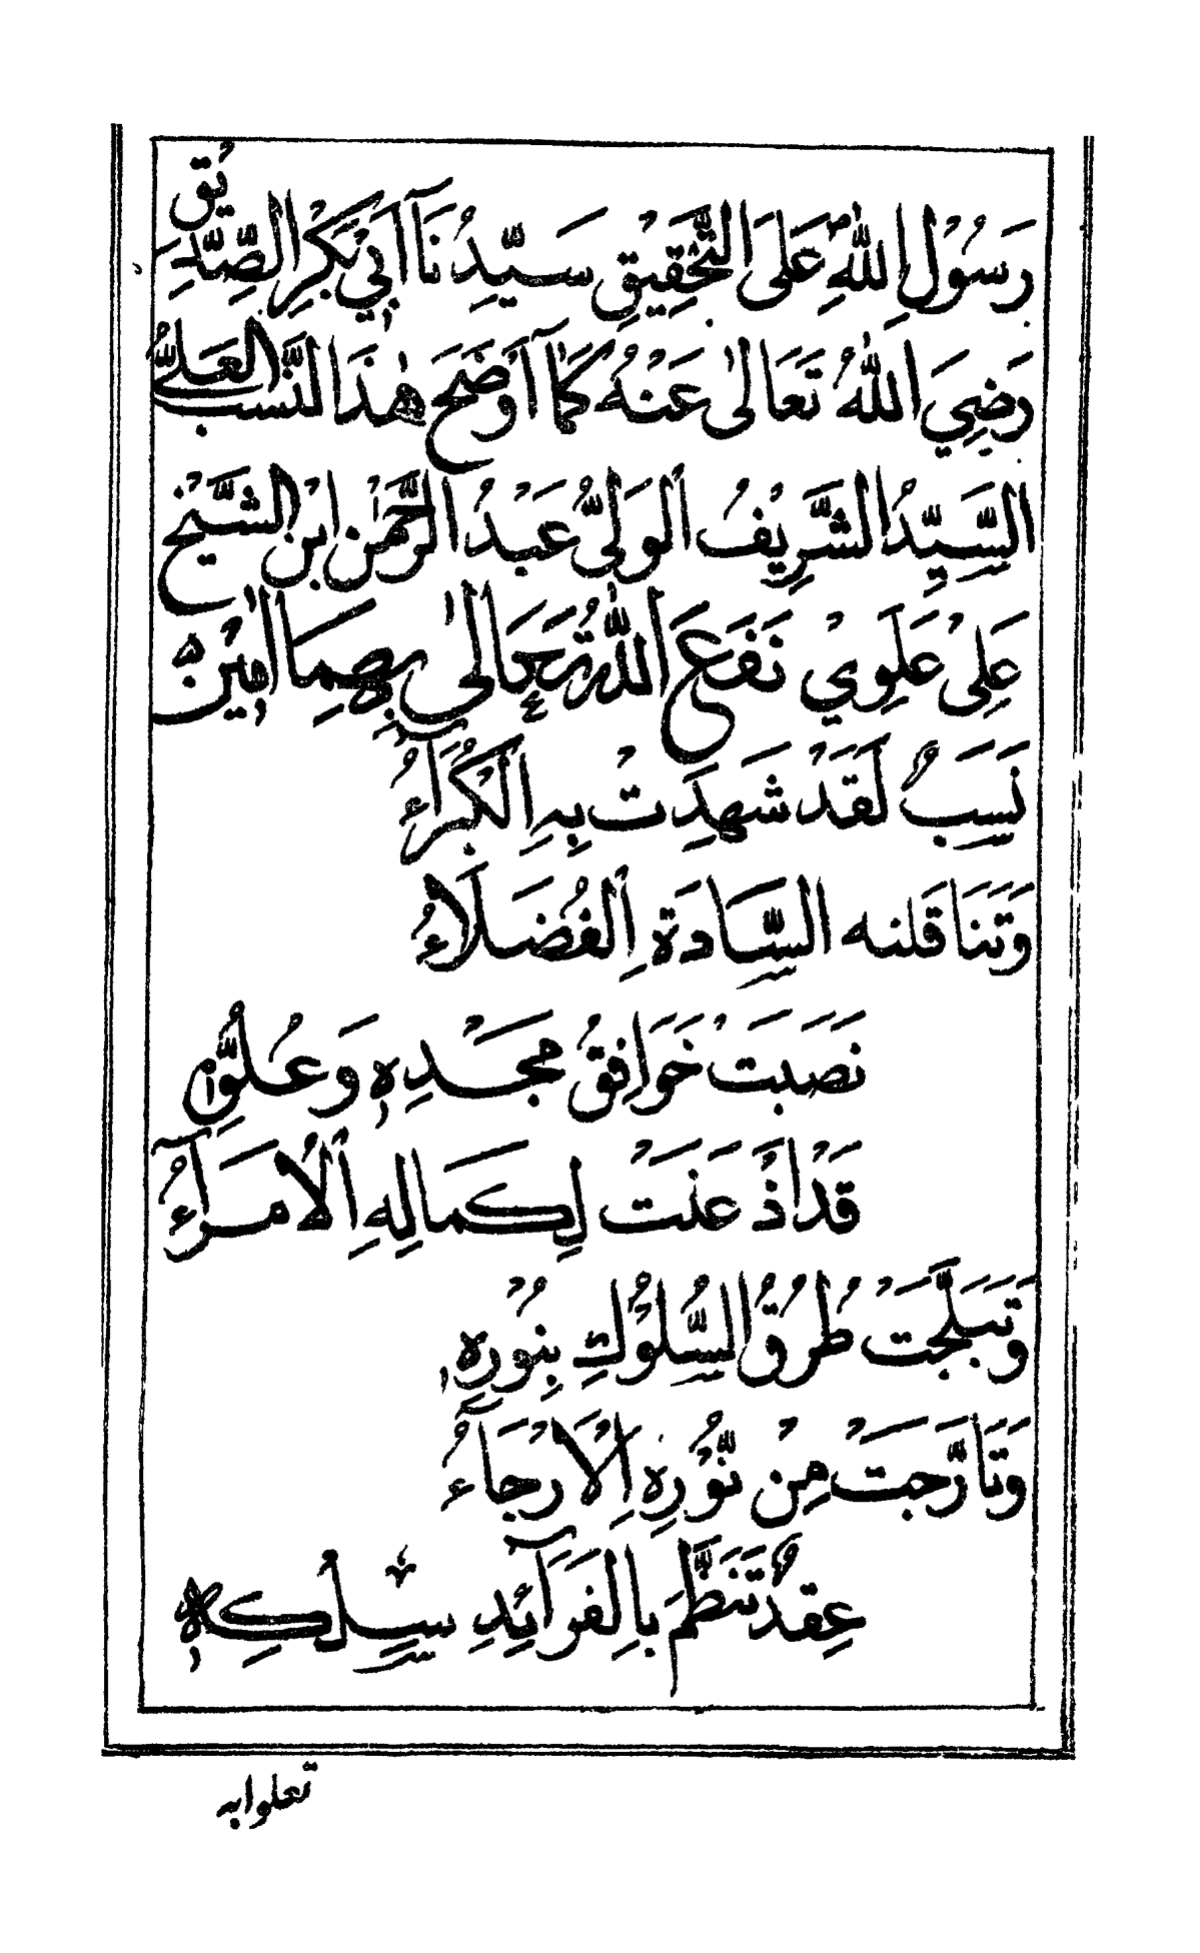 رَسُوْلِ اللّٰهِ عَلَى التَّحْقِيْقِ سَيِّدِنَآ اَبِيْ بَكْرِ الصِّدِّيْق
رَضِيَ اللّٰهُ تَعَالٰى عَنْهُ كَمَآ اَوْضَحَ هٰذَا النَّسَبَ الْعَلِيَّ
السَّيِّدُ الشَّرِيْفُ الْوَلِيُّ عَبْدُ الرَّحْمٰنِ ابْنُ الشَّيْخِ
عَلِيْ عَلَوِيْ نَفَعَ اللّٰهُ تَعَالٰى بِهِمَا اٰمِيْنْ
نَسَبٌ لَقَدْ شَهِدَتْ بِهِ الْكُبَرَآءُ
وَتَنَاقَلَتْهُ السَّادَةُ الْفُضَلَاءُ
نَصَبَتْ خَوَافِقُ مَجْدِهٖ وَعُلُوِّهٖ
قَدْ اَذْعَنَتْ لِكَمَالِهِ الْاُمَرَآءُ
وَتَبَلَّجَتْ طُرُقُ السُّلُوْكِ بِنُوْرِهٖ
وَتَاَرَّجَتْ مِنْ نُّوْرِهِ الْاَرْجَآءُ
عِقْدٌ تَنَظَّمَ بِالْفَرَآئِدِ سِلْكُهٗ
تعلوا به